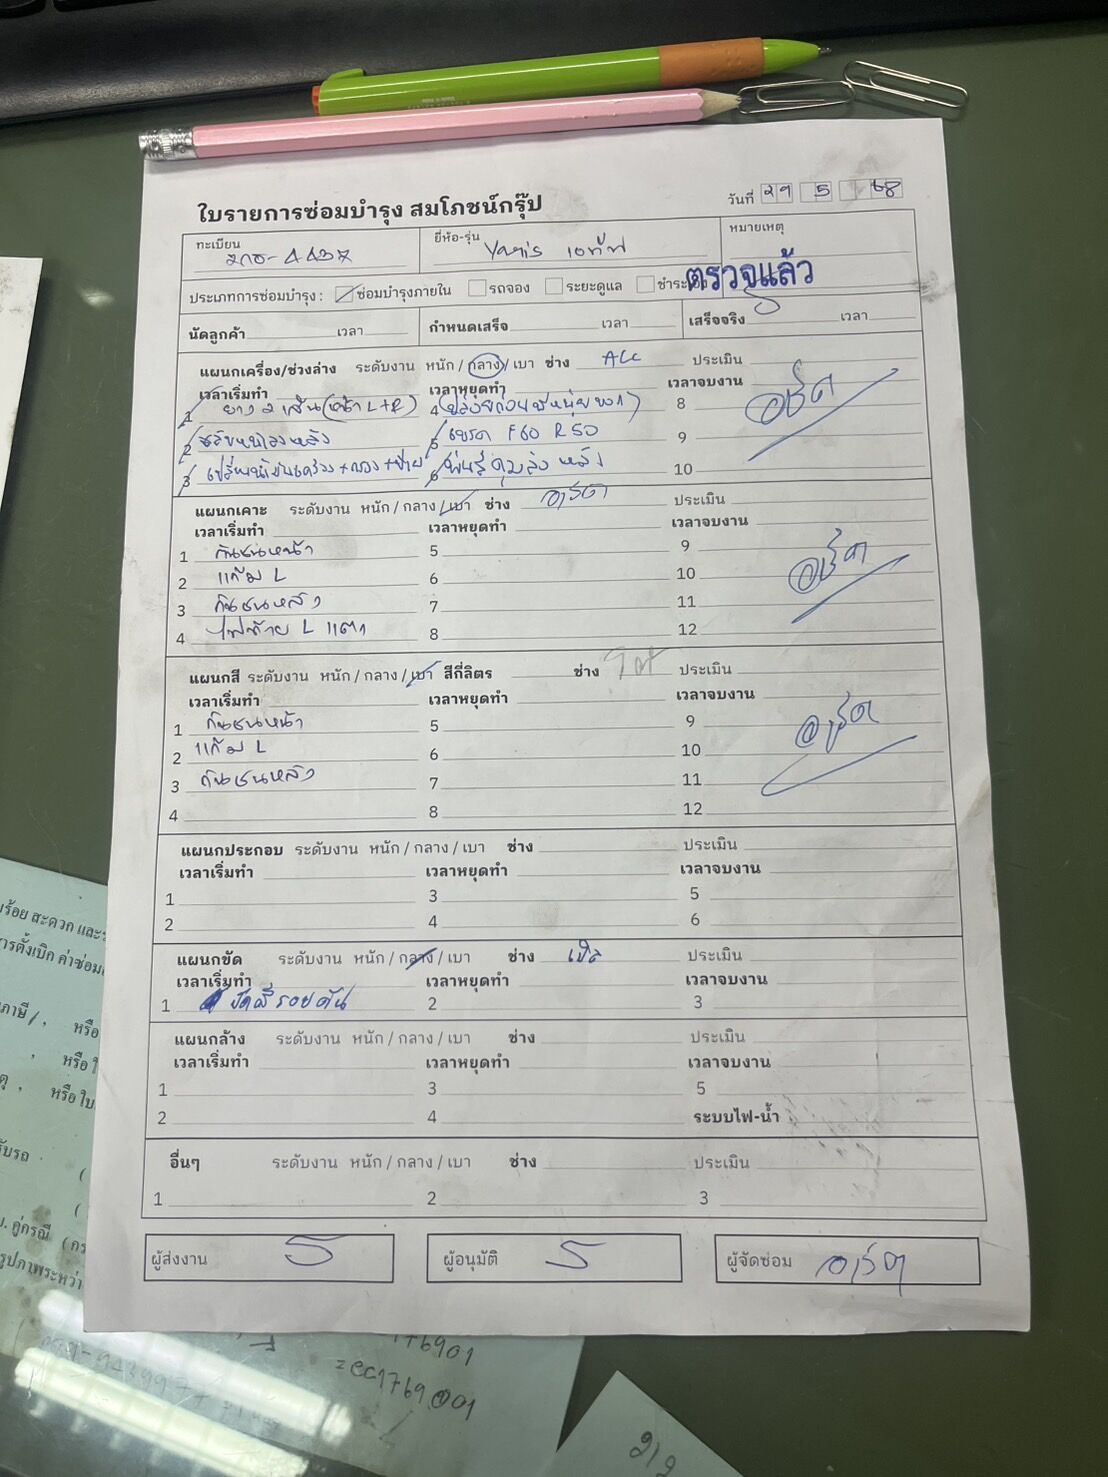 ใบรายการซ่อมบำรุง สมโภชน์กรุ๊ป
วันที่ 29 5 68
ทะเบียน
ยี่ห้อ-รุ่น Yaris เอทีฟ
หมายเหตุ
ตรวจแล้ว
ประเภทการซ่อมบำรุง : ซ่อมบำรุงภายใน รถจอง ระยะดูแล
นัดลูกค้า เวลา กำหนดเสร็จ เวลา เสร็จจริง เวลา
แผนกเครื่อง/ช่วงล่าง ระดับงาน หนัก / กลาง / เบา ช่าง ALL ประเมิน
เวลาเริ่มทำ เวลาหยุดทำ เวลาจบงาน
1 ยาง 2 เส้น (หน้า L+R) 4 8
2 5 เบรค F60 R50 9
3 6 10
แผนกเคาะ ระดับงาน หนัก / กลาง / เบา ช่าง อาร์ต ประเมิน
เวลาเริ่มทำ เวลาหยุดทำ เวลาจบงาน
1 กันชนหน้า 5 9
2 แก้ม L 6 10
3 กันชนหลัง 7 11
4 ไฟท้าย L แตก 8 12
แผนกสี ระดับงาน หนัก / กลาง / เบา สีกี่ลิตร ช่าง ประเมิน
เวลาเริ่มทำ เวลาหยุดทำ เวลาจบงาน
1 กันชนหน้า 5 9
2 แก้ม L 6 10
3 กันชนหลัง 7 11
4 8 12
แผนกประกอบ ระดับงาน หนัก / กลาง / เบา ช่าง ประเมิน
เวลาเริ่มทำ เวลาหยุดทำ เวลาจบงาน
1 3 5
2 4 6
แผนกขัด ระดับงาน หนัก / กลาง / เบา ช่าง เป็ด ประเมิน
เวลาเริ่มทำ เวลาหยุดทำ เวลาจบงาน
1 ขัดสีรอบคัน 2 3
แผนกล้าง ระดับงาน หนัก / กลาง / เบา ช่าง ประเมิน
เวลาเริ่มทำ เวลาหยุดทำ เวลาจบงาน
1 3 5
2 4 ระบบไฟ-น้ำ
อื่นๆ ระดับงาน หนัก / กลาง / เบา ช่าง ประเมิน
1 2 3
ผู้ส่งงาน ผู้อนุมัติ ผู้จัดซ่อม อาร์ต